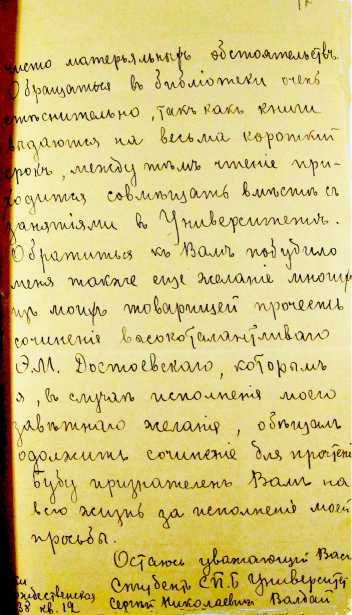 чисто матерьяльныхъ обстоятельствъ.
Обращаться въ библіотеки очень
стѣснительно, такъ какъ книги
выдаются на весьма короткій
срокъ, между тѣмъ чтеніе при-
ходится совмѣщать вмѣстѣ съ
занятіями въ Университетѣ.
Обратиться къ Вамъ побудило
меня также еще желаніе многихъ
изъ моихъ товарищей прочесть
сочиненія высокоталантливаго
Ѳ.М. Достоевскаго, которымъ
я, въ случаѣ исполненія моего
завѣтнаго желанія, обѣщалъ
одолжить сочиненіе для прочтенія
Буду признателенъ Вамъ на
всю жизнь за исполненіе моей
просьбы.
Остаюсь уважающій Васъ
Студентъ С.П.Б. Университ
Сергѣй Николаевичъ Валдай
ждественская
38 кв. 19